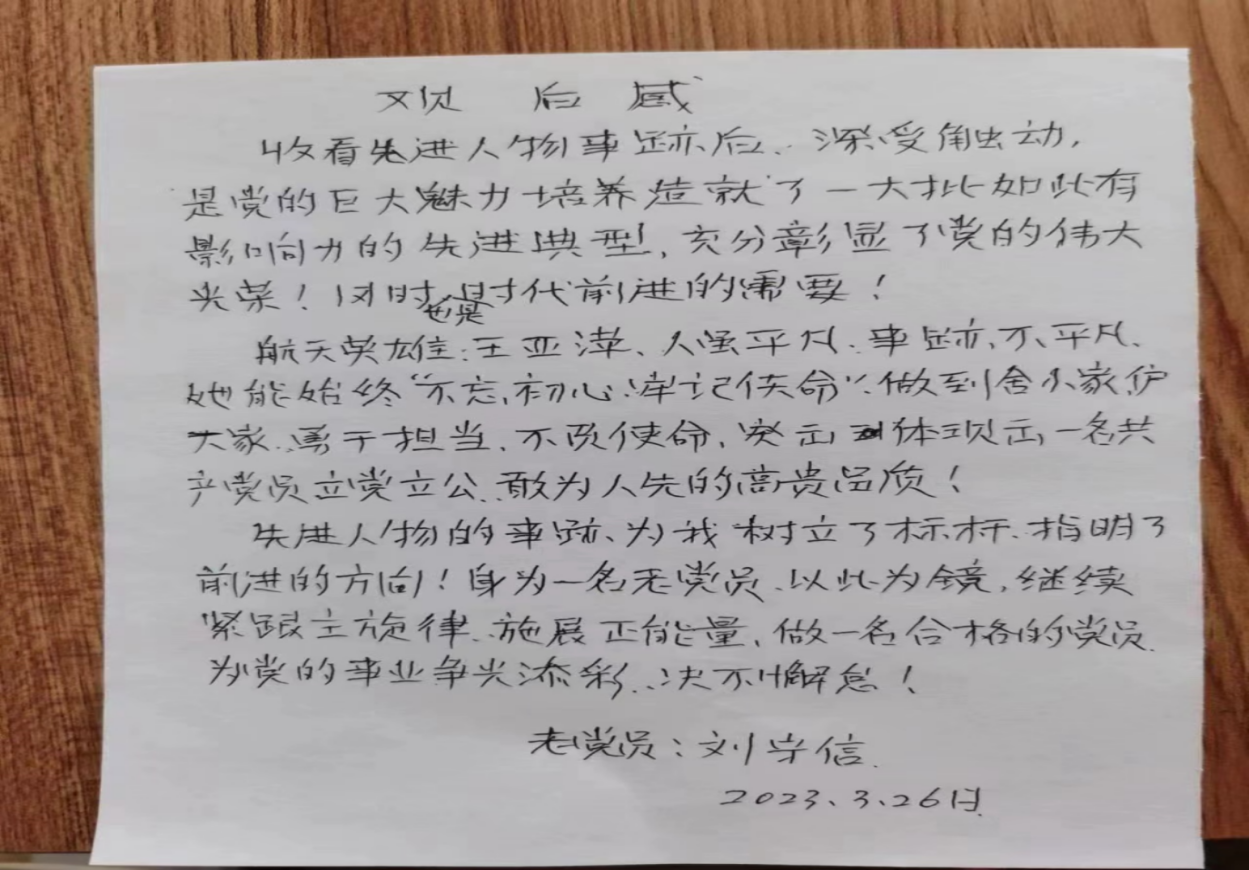 观 后 感
收看先进人物事迹后、深受触动,
是党的巨大魅力培养造就了一大批如此有
影响力的先进典型,充分彰显了党的伟大
光荣!同时也是时代前进的需要!
航天英雄:王亚萍、人虽平凡、事迹不平凡、
她能始终“不忘初心、牢记使命”、做到舍小家护
大家、勇于担当、不负使命,突出体现出一名共
产党员立党立公、敢为人先的高贵品质!
先进人物的事迹、为我树立了标杆、指明了
前进的方向!身为一名老党员、以此为镜,继续
紧跟主旋律、施展正能量,做一名合格的党员
为党的事业争光添彩、决不懈怠!
老党员:刘守信.
2023.3.26日